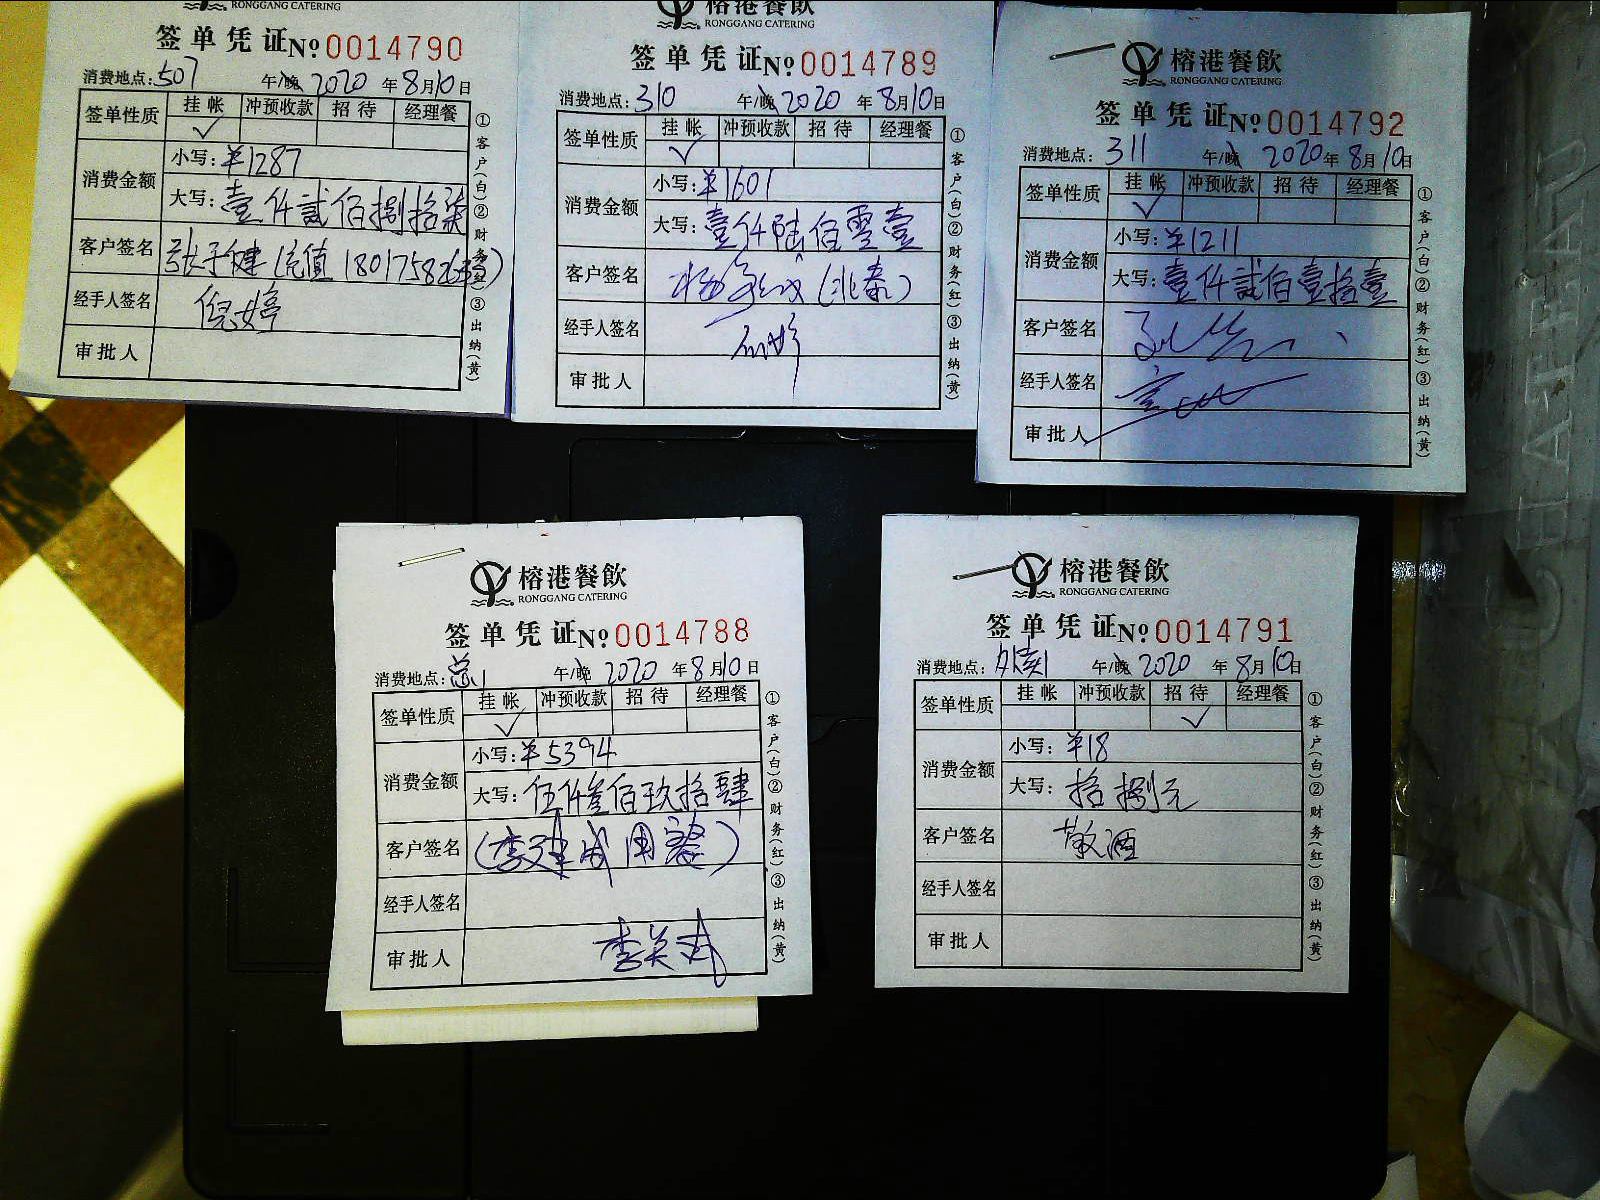 RONGGANG CATERING
签单凭证 № 0014790
消费地点: 507 午/晚 2020 年 8月10日
签单性质 挂帐 冲预收款 招待 经理餐
✓
消费金额 小写: ¥1287
大写: 壹仟贰佰捌拾柒
客户签名
经手人签名 倪婷
审批人
①客户(白)②财务(红)③出纳(黄)
榕港餐飲
RONGGANG CATERING
签单凭证 № 0014789
消费地点: 310 午/晚 2020 年 8月10日
签单性质 挂帐 冲预收款 招待 经理餐
✓
消费金额 小写: ¥1601
大写: 壹仟陆佰零壹
客户签名
经手人签名
审批人
①客户(白)②财务(红)③出纳(黄)
榕港餐飲
RONGGANG CATERING
签单凭证 № 0014792
消费地点: 311 午/晚 2020 年 8月10日
签单性质 挂帐 冲预收款 招待 经理餐
✓
消费金额 小写: ¥1211
大写: 壹仟贰佰壹拾壹
客户签名
经手人签名
审批人
①客户(白)②财务(红)③出纳(黄)
榕港餐飲
RONGGANG CATERING
签单凭证 № 0014788
消费地点: 总1 午/晚 2020 年 8月10日
签单性质 挂帐 冲预收款 招待 经理餐
✓
消费金额 小写: ¥5394
大写: 伍仟叁佰玖拾肆
客户签名 (李建成用餐)
经手人签名
审批人
①客户(白)②财务(红)③出纳(黄)
榕港餐飲
RONGGANG CATERING
签单凭证 № 0014791
消费地点: 午/晚 2020 年 8月10日
签单性质 挂帐 冲预收款 招待 经理餐
✓
消费金额 小写: ¥18
大写: 拾捌元
客户签名 敬酒
经手人签名
审批人
①客户(白)②财务(红)③出纳(黄)